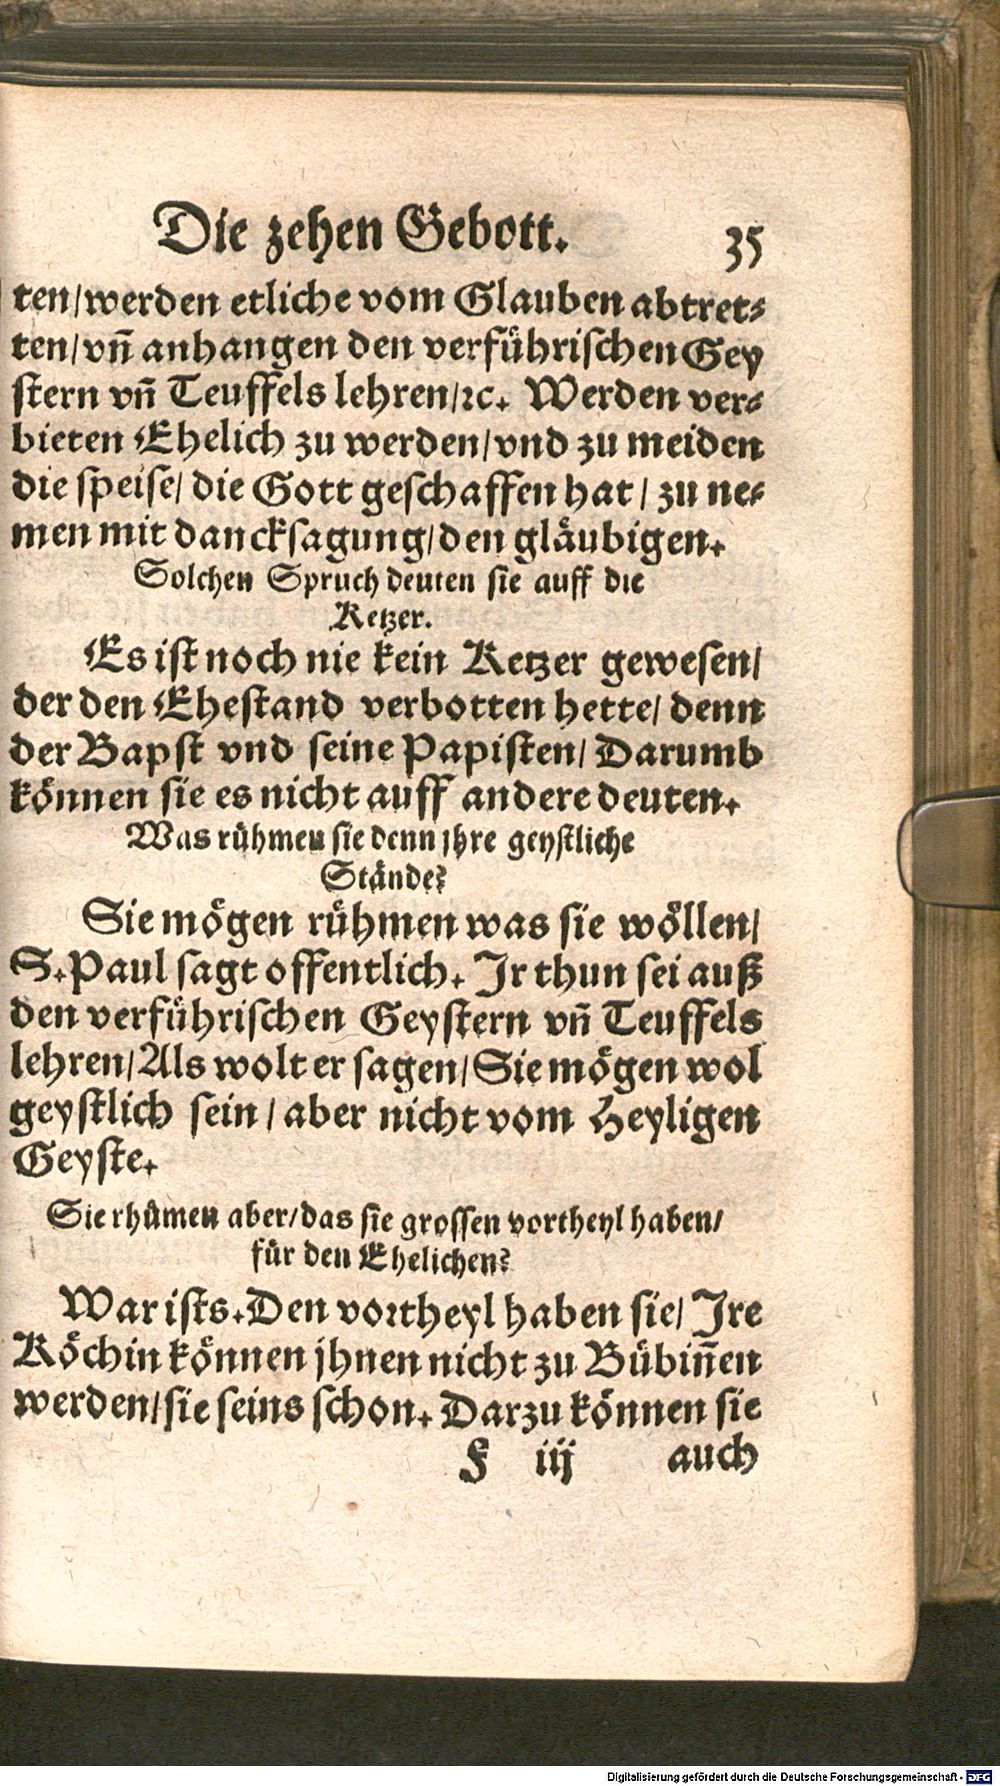 Die zehen Gebott.
35
ten/werden etliche vom Glauben abtret⸗
ten/vñ anhangen den verführischen Gey
stern vñ Teuffels lehren/ꝛc. Werden ver⸗
bieten Ehelich zu werden/vnd zu meiden
die speise/die Gott geschaffen hat/zu ne⸗
men mit dancksagung/den gläubigen.
Solchen Spruch deuten sie auff die
Ketzer.
Es ist noch nie kein Ketzer gewesen/
der den Ehestand verbotten hette/denn
der Bapst vnd seine Papisten/Darumb
können sie es nicht auff andere deuten.
Was rühmen sie denn jhre geystliche
Stände?
Sie mögen rühmen was sie wöllen/
S.Paul sagt offentlich. Jr thun sei auß
den verführischen Geystern vñ Teuffels
lehren/Als wolt er sagen/Sie mögen wol
geystlich sein/aber nicht vom Heyligen
Geyste.
Sie rhümen aber/das sie grossen vortheyl haben/
für den Ehelichen?
War ists.Den vortheyl haben sie/Jre
Köchin können jhnen nicht zu Bübiñen
werden/sie seins schon. Darzu können sie
F iij auch
Digitalisierung gefördert durch die Deutsche Forschungsgemeinschaft - DFG